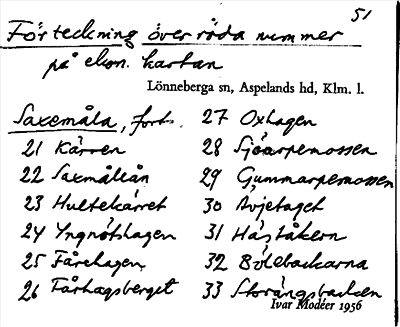 51
Förteckning över röda nummer
på ekon. kartan
Lönneberga sn, Aspelands hd, Klm. l.
Saxemåla, forts.
21 Kärren
22 Saxmålaån
23 Hultekärret
24 Yngnötshagen
25 Fårehagen
26 Fårhagsberget
27 Oxhagen
28 Sjöarpemossen
29 Gummarpemossen
30 Avjetaget
31 Háståkern
32 Bölebackarna
33 Storängsbacken
Ivar Modéer 1956